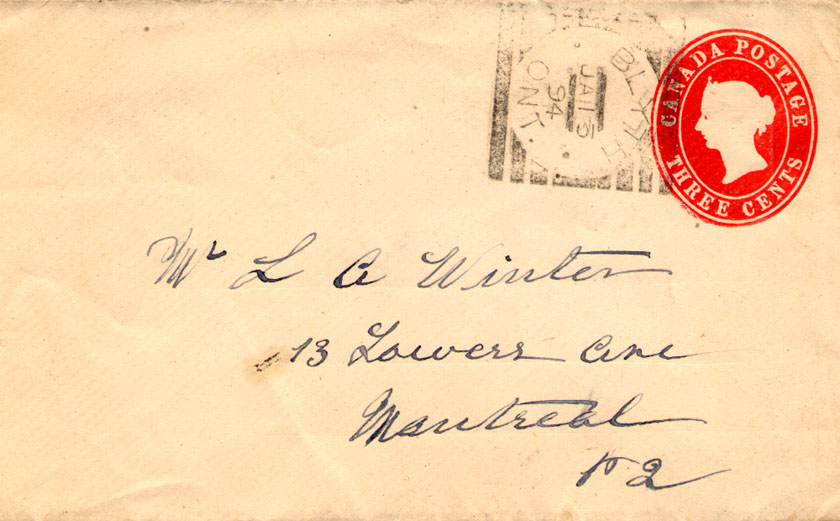 CANADA POSTAGE
THREE CENTS
BLYTH
JA 13
94
ONT.
Mr L A Winter
13 Lowers Ave
Montreal
P 2